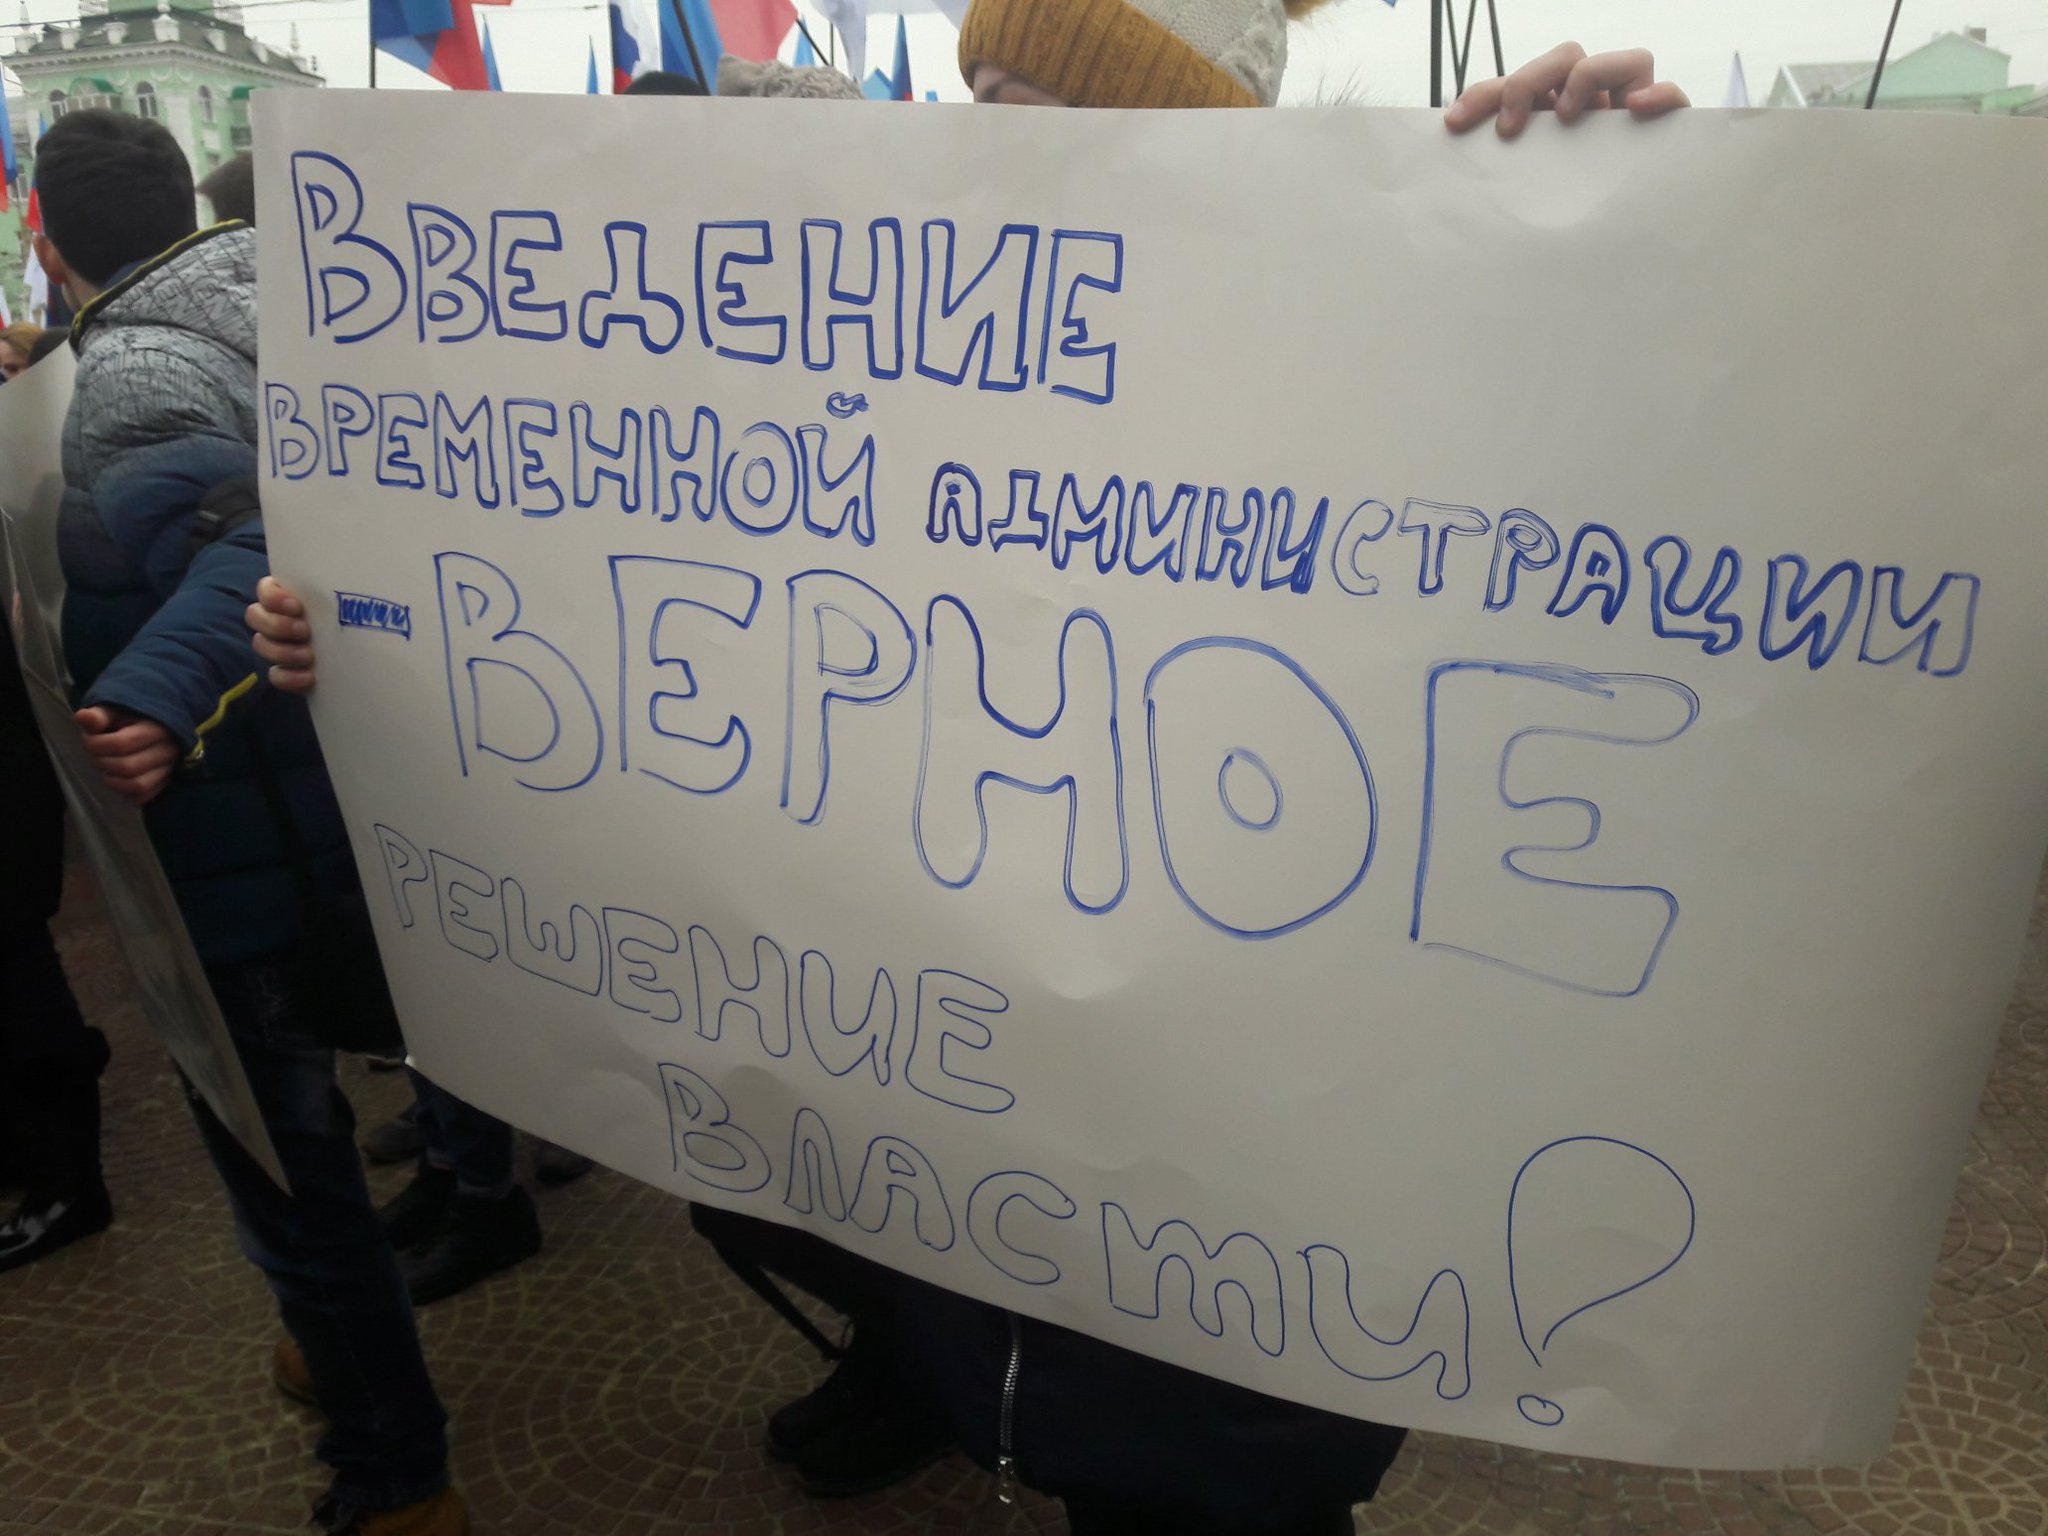 Введение
временной администрации
- Верное
решение
власти!